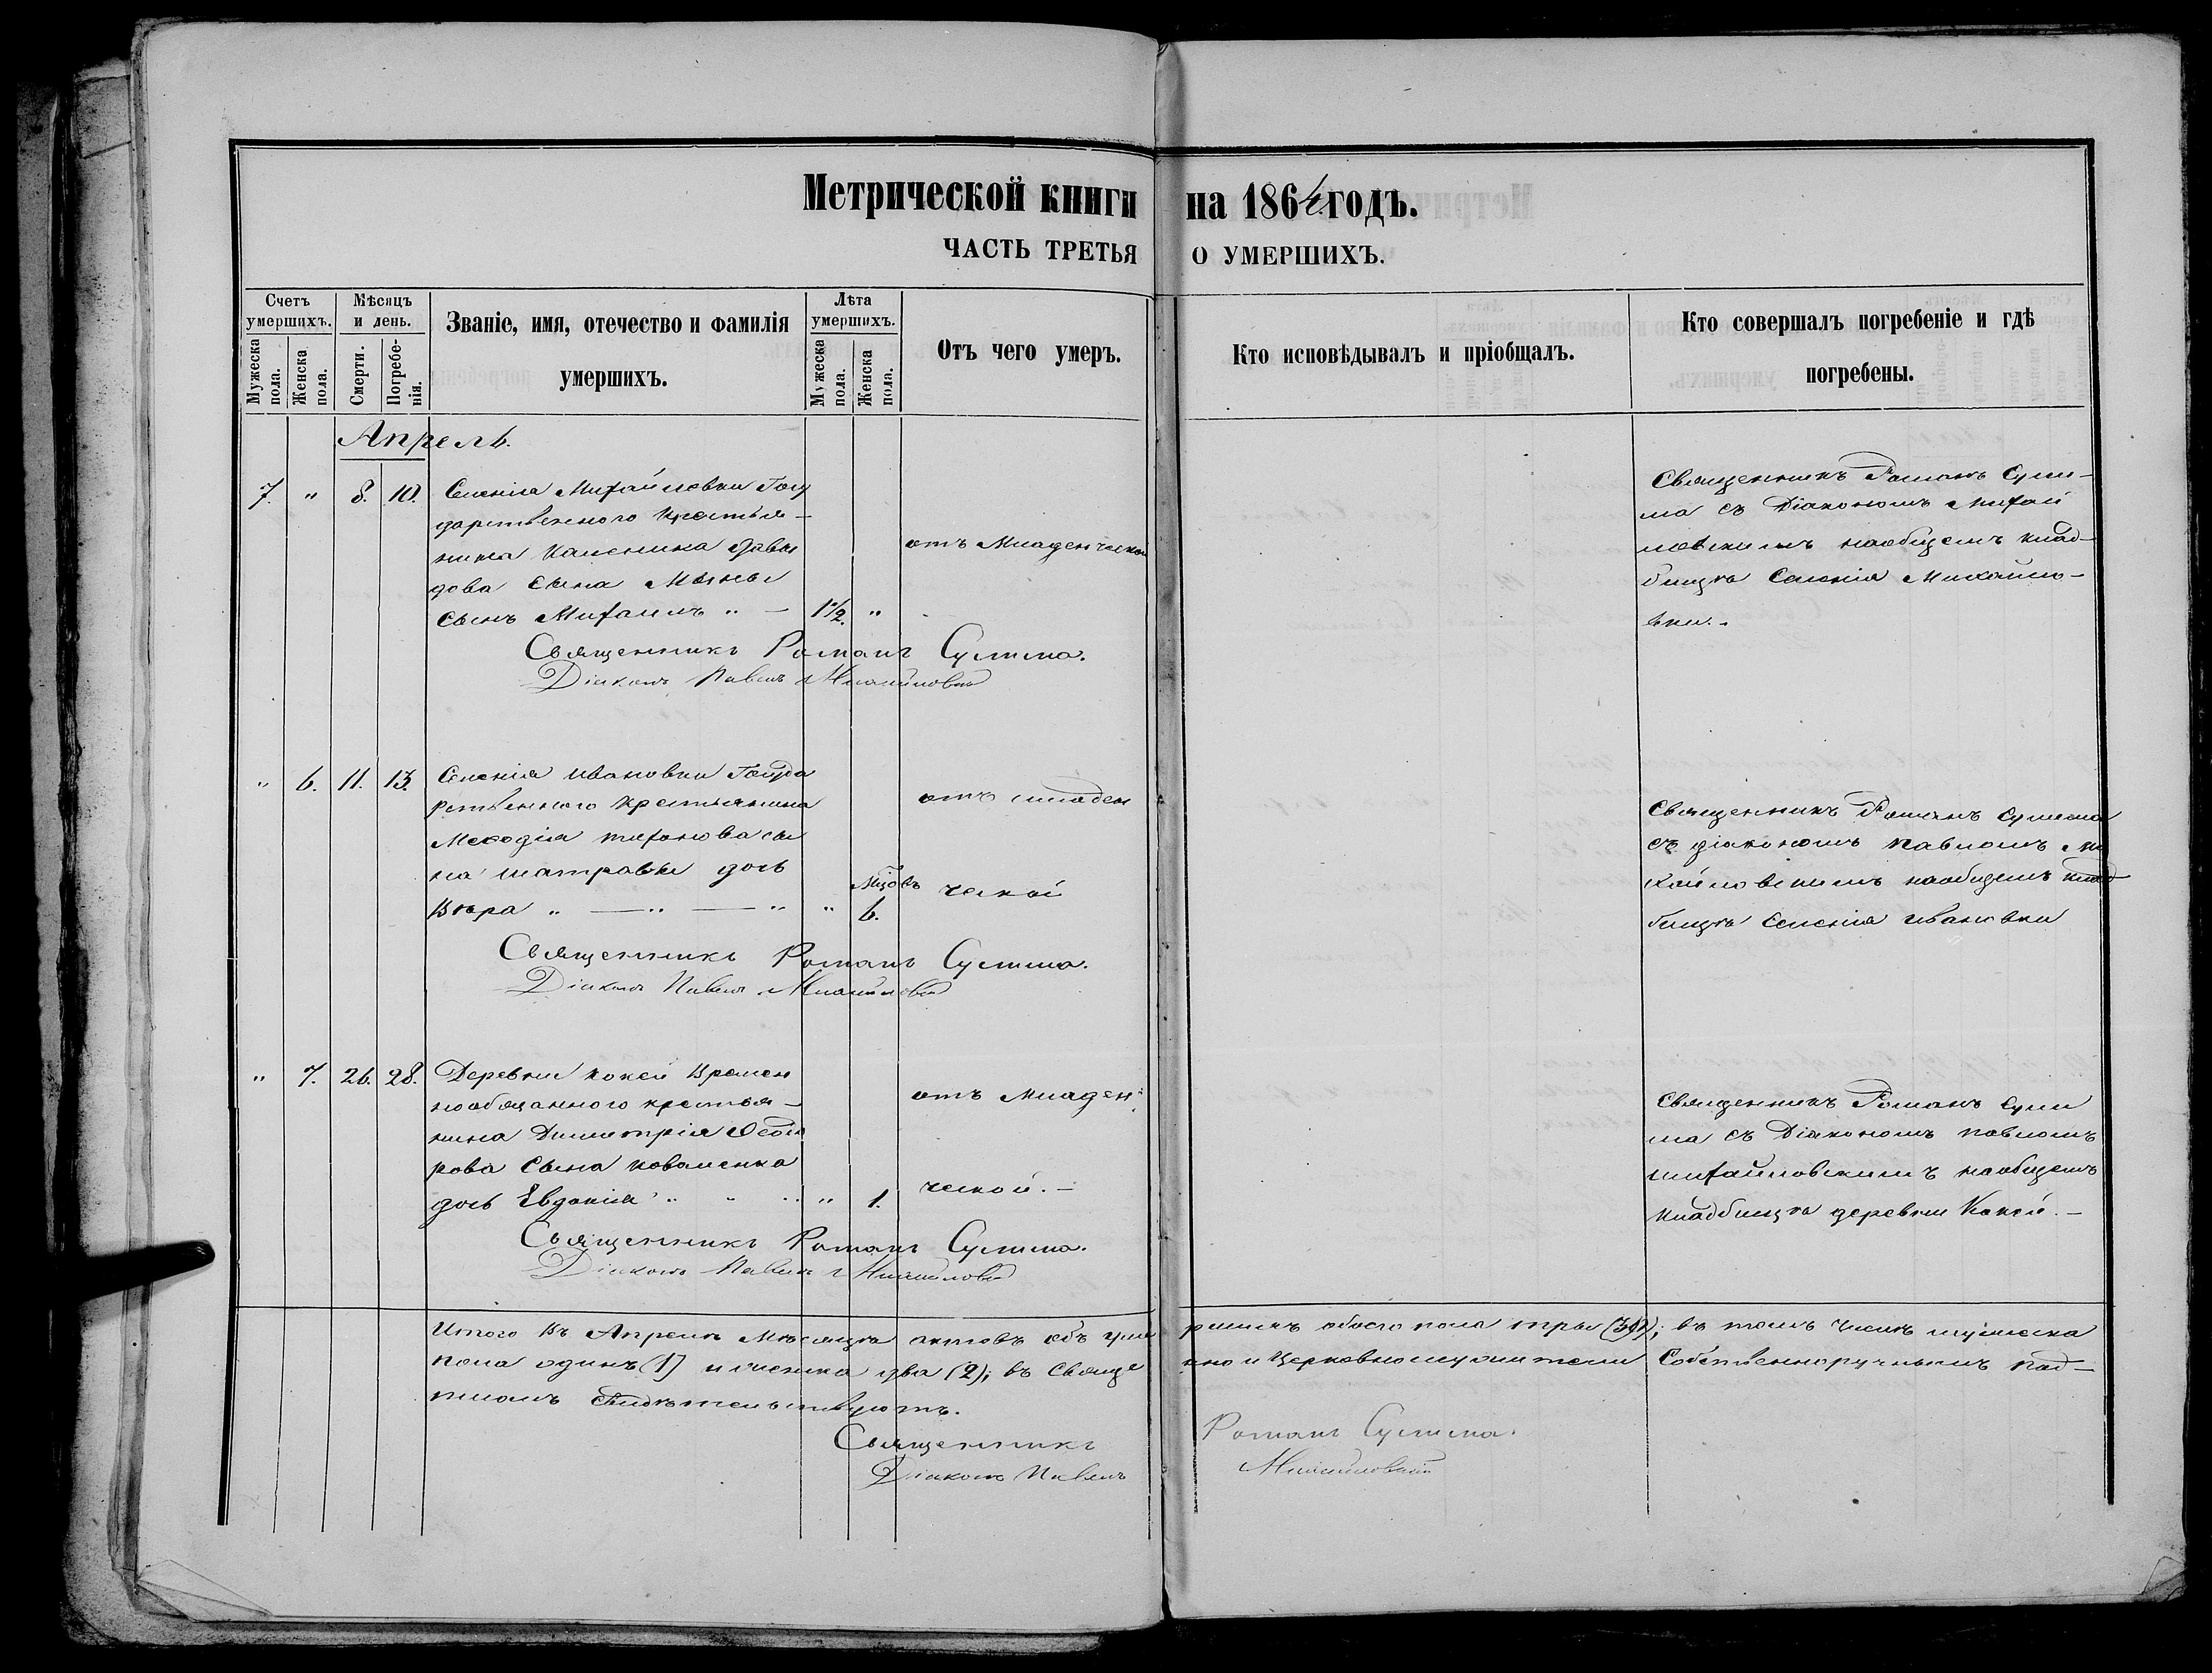 Метрической книги на 1864 годъ.
ЧАСТЬ ТРЕТЬЯ О УМЕРШИХЪ.
Счетъ умершихъ.
Мужеска пола.
Женска пола.
Мѣсяцъ и день.
Смерти.
Погребенія.
Званіе, имя, отечество и фамилія
умершихъ.
Лѣта умершихъ.
Мужеска пола.
Женска пола.
Отъ чего умеръ.
Кто исповѣдывалъ и пріобщалъ.
Кто совершалъ погребеніе и гдѣ
погребены.
Апрель.
7. " 8. 10. Селенія Михайловки Госу
дарственного Крестья-
нина Давы
дова сына
сынъ Михаилъ " - 1½. "
отъ Младенческой
Священникъ Романъ Сули-
ма съ Діакономъ Михай
ловскимъ наобщемъ клад-
бищѣ Селенія Михайло-
вки.
Священникъ Романъ Сулима.
Діаконъ Павелъ Михайловскій
" 6. 11. 13. Селенія Ивановки Госуда
рственного крестьянина
Мефодія Тихонова сы
на Шатравки дочь
Вѣра " — " — " " Мцовъ 6.
отъ младен
ческой
Священникъ Романъ Сулима
съ діакономъ Павломъ Ми
хайловскимъ наобщемъ клад
бищѣ Селенія Ивановки
Священникъ Романъ Сулима.
Діаконъ Павелъ Михайловскій
" 7. 26. 28. Деревни Кокей Времен
нообязанного крестья-
нина Димитрія Ѳедо
рова сына Коваленка
дочь Евдокія " " " " 1.
отъ младен
ческой. -
Священникъ Романъ Сули
ма съ Діакономъ Павломъ
Михайловскимъ наобщемъ
кладбищѣ деревни Кокей. -
Священникъ Романъ Сулима.
Діаконъ Павелъ Михайловскій
Итого въ Апрелѣ Мѣсяцѣ актовъ объ умершихъ обоего пола три (3); въ томъ числѣ мужеска
пола одинъ (1) и женска два (2); въ Священно и Церковнослужители Собственноручнымъ под-
писомъ свидѣтельствуютъ.
Священникъ Романъ Сулима.
Діаконъ Павелъ Михайловскій